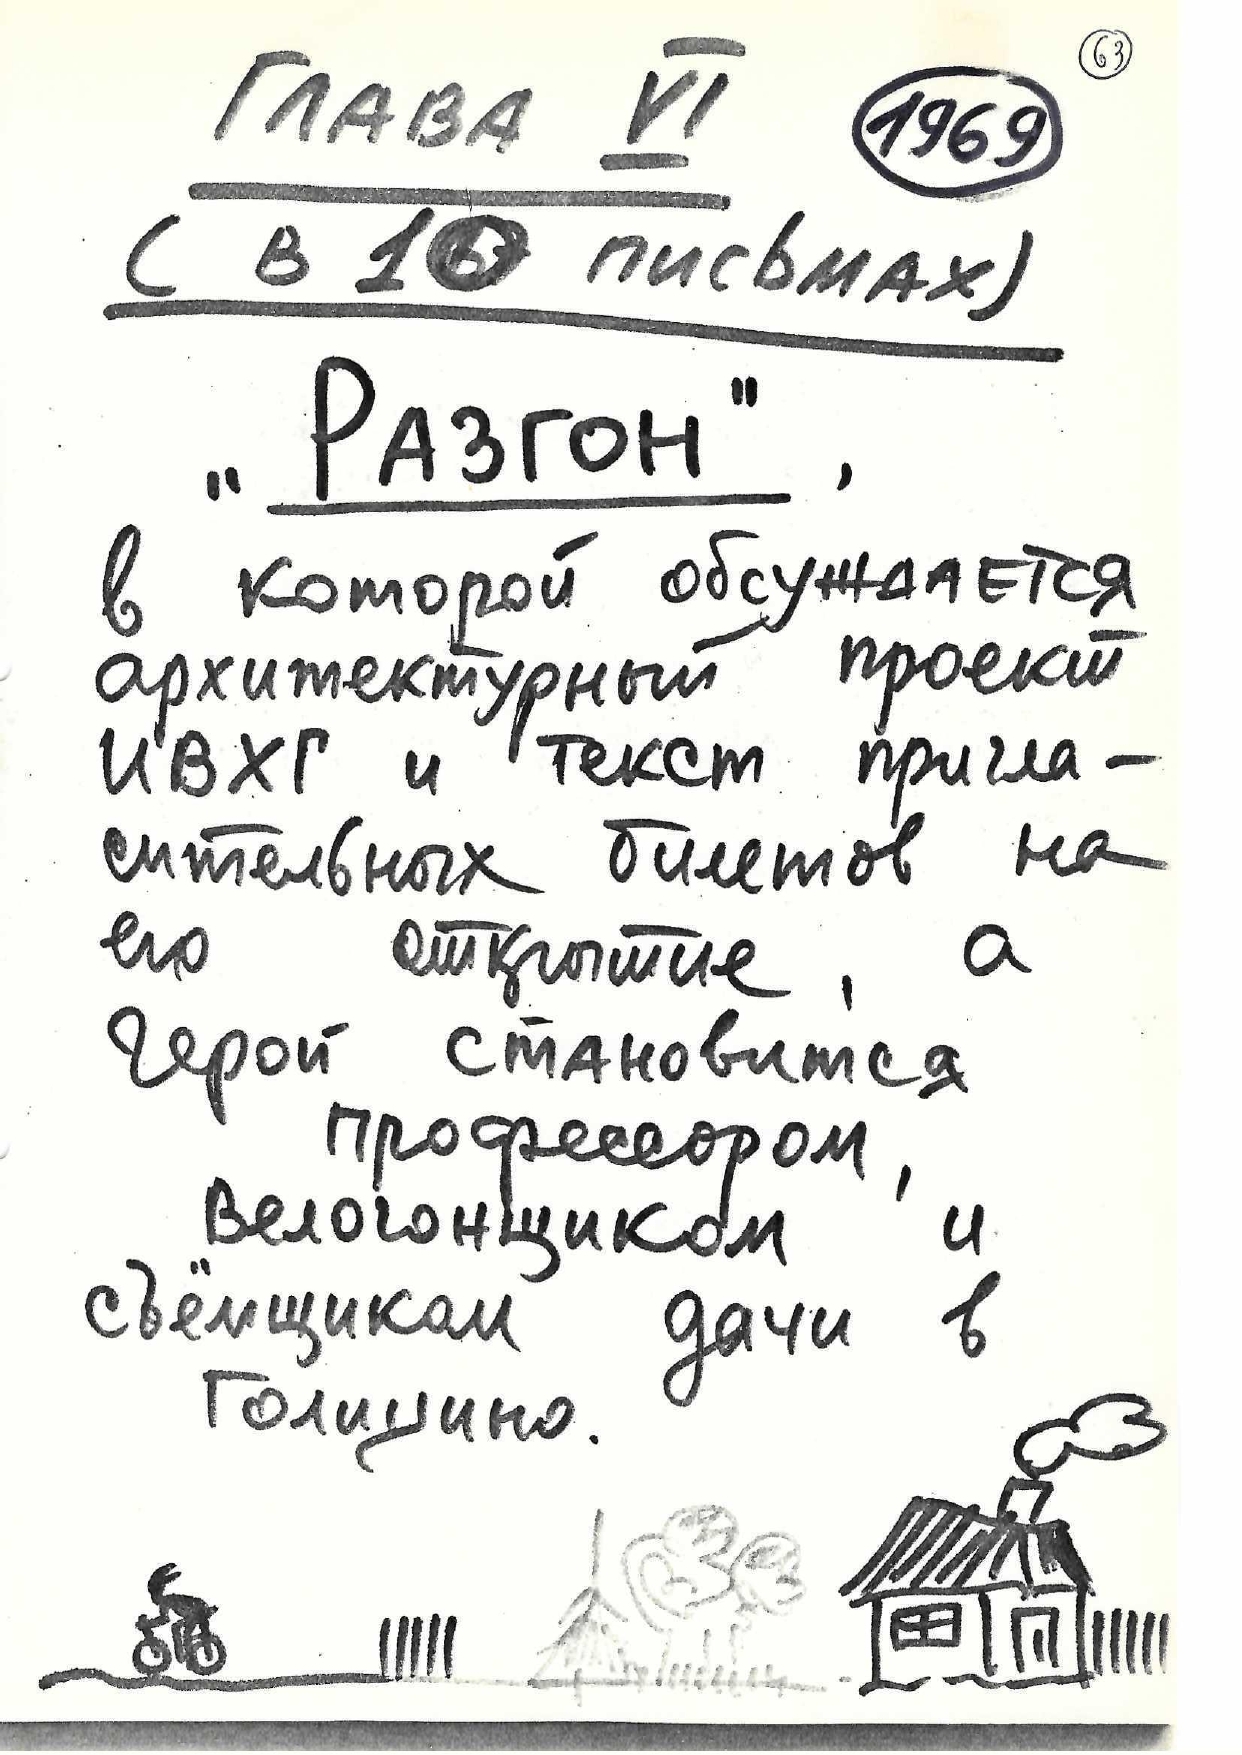 63
ГЛАВА VI
1969
( в 16 письмах)
„РАЗГОН",
в которой обсуждается
архитектурный проект
ИВХГ и текст пригла-
сительных билетов на
его открытие, а
герой становится
профессором,
велогонщиком и
съёмщиком дачи в
Голицино.